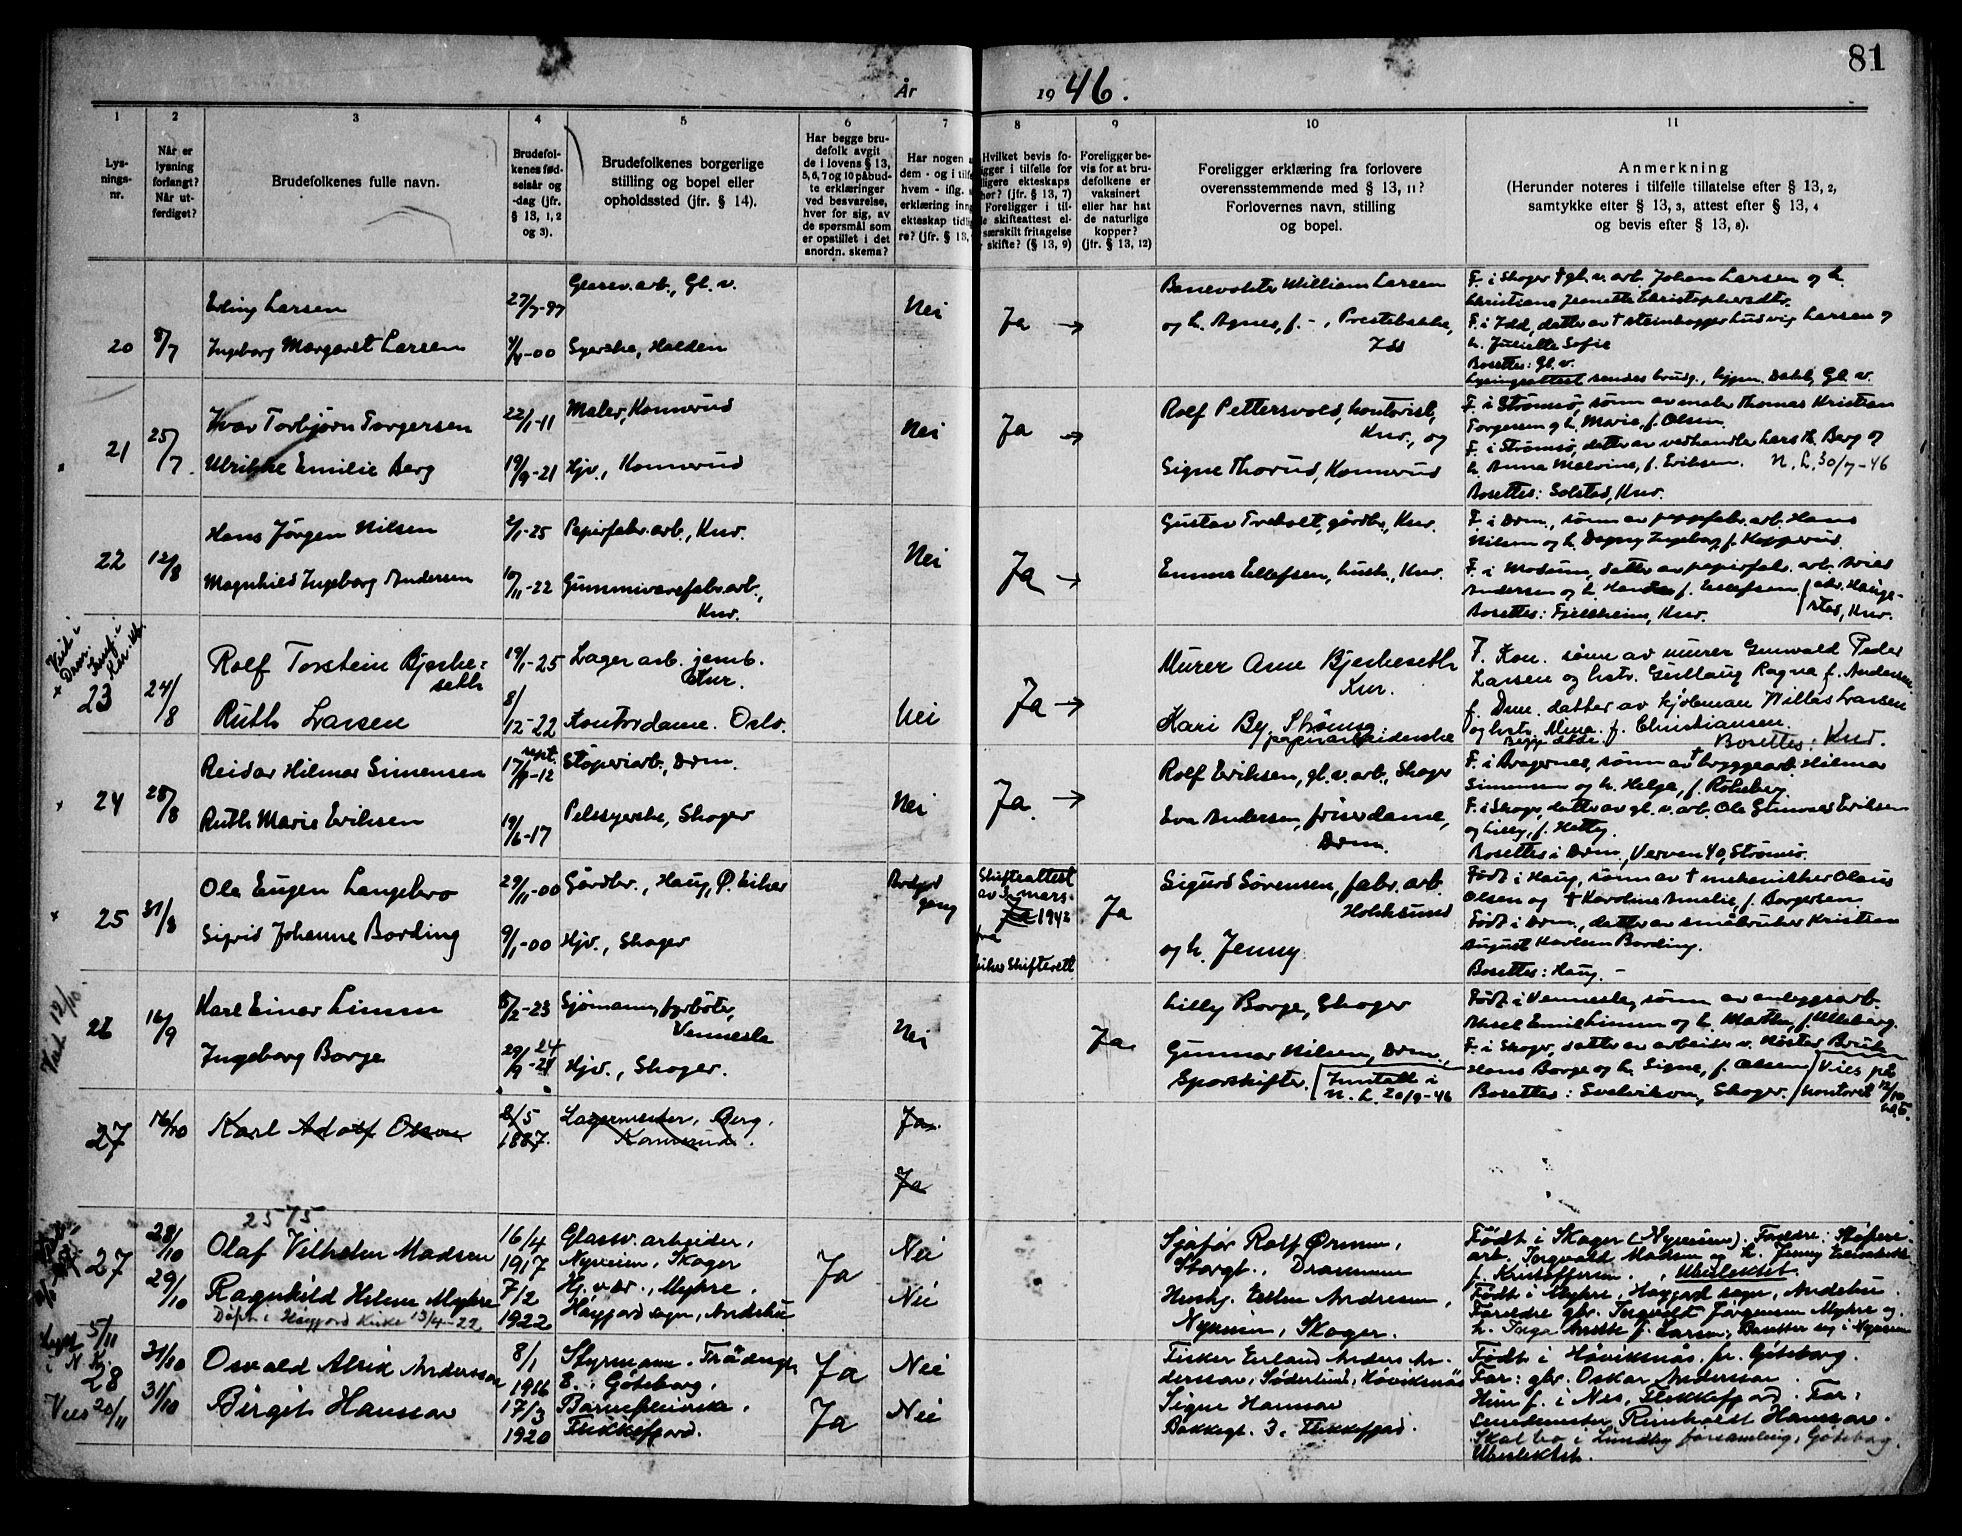 81
År 1946.
1
Lys-
nings-
nr.
2
Når er
lysning
forlangt?
Når ut-
ferdiget?
3
Brudefolkenes fulle navn.
4
Brudefol-
kenes fød-
selsår og
-dag (jfr.
§ 13, 1, 2
og 3).
5
Brudefolkenes borgerlige
stilling og bopel eller
opholdssted (jfr. § 14).
6
Har begge bru-
defolk avgit
de i lovens § 13,
5, 6, 7 og 10 påbud-
te erklæringer
ved besvarelse,
hver for sig, av
de spørsmål som
er opstillet i det
anordn. skema?
7
Har nogen
dem - og i
hvem - iflg.
erklæring
ekteskap
re? (jfr. § 13,
8
Hvilket bevis fo-
ligger i tilfelle for
ligere ekteskaps
(jfr. § 13, 7)
Foreligger i til-
skifteattest el-
særskilt fritagelse
skifte? (§ 13, 9)
9
Foreligger be-
vis for at bru-
defolkene er
vaksinert
eller har hat
de naturlige
kopper?
(jfr. § 13, 12)
10
Foreligger erklæring fra forlovere
overensstemmende med § 13, 11?
Forlovernes navn, stilling
og bopel.
11
Anmerkning
(Herunder noteres i tilfelle tillatelse efter § 13, 2,
samtykke efter § 13, 3, attest efter § 13, 4
og bevis efter § 13, 8).
20
8/7
Erling Larsen
Ingeborg Margaret Larsen
27/7-97
4/4-00
Glassv. arb., Gl. v.
Syerske, Halden
Nei
Ja →
Banevokter William Larsen
og h. Agnes, f. -, Prestebakke,
Idd
F. i Skoger † gl. v. arb. Johan Larsen og h.
Christiane Jeanette Christophersdtr.
F. i Idd, datter av † steinhogger Ludvig Larsen og
h. Juliette Sofie
Bosettes: Gl. v.
Lysingsattest sendes brudg., Dahl, Gl. v.
21
25/7
Ivar Torbjørn Torgersen
Ulrikke Emilie Berg
22/1-11
19/9-21
Maler, Konnerud
Hjv., Konnerud
Nei
Ja →
Rolf Pettersvold, kontorist,
Knr., og
Signe Thorud, Konnerud
F. i Strømsø, sønn av maler Thomas Kristian
Torgersen og h. Marie, f. Olsen
F. i Strømsø, datter av vedhandler Lars Th. Berg og
h. Anna Malvine, f. Eriksen. N. L. 30/7-46
Bosettes: Solstad, Knr.
22
12/8
Hans Jørgen Nilsen
Magnhild Ingeborg Andersen
2/1-25
10/11-22
Papirfabr. arb., Knr.
Gummivarefabr. arb.,
Knr.
Nei
Ja →
Gustav Treholt, gårdbr., Knr.
Emma Ellefsen, hush., Knr.
F. i Drm., sønn av pappfabr. arb. Hans
Nilsen og h. Dagny Ingeborg, f. Kopperud.
F. i Modum, datter av papirfabr. arb.
Andersen og h. f. Ellefsen
Bosettes: Fjellheim, Knr.
23
24/8
Rolf Torstein Bjerke-
seth
Ruth Larsen
19/1-25
8/12-22
Lager arb. jernb.
Knr.
Kontordame. Oslo.
Nei
Ja →
Murer Arne Bjerkeseth
Knr.
Kari By, Strømsø
papirarbeiderske
F. Kon. sønn av murer Gunvald Peder
Larsen og hstr. Gullaug Ragna f. Andersen.
f. Drm. datter av kjølemann Nillas Larsen
og hstr. Mina f. Christiansen.
Bosettes: Knr.
24
28/8
Reidar Hilmar Simensen
Ruth Marie Eriksen
sept.
17/9-12
19/6-17
Støperiarb., Drm.
Pelssyerske, Skoger
Nei
Ja. →
Rolf Eriksen, gl. v. arb., Skoger
Eva Andersen, friserdame,
Drm.
F. i Bragernes, sønn av † bryggearb. Hilmar
Simensen og h. Helga, f. Rökeberg.
F. i Skoger, datter av gl. v. arb. Ole Gunvald Eriksen
og Lilly, f. Hetty.
Bosettes i Drm., Verven 40, Strømsø.
25
31/8
Ole Eugen Langebro
Sigrid Johanne Bording
29/11-00
9/1-00
Gårdbr., Haug, Ø. Eiker
Hjv., Skoger
Brudgom
gang
Skifteattest
av 3 mars-
1942
fra
Eiker Skifterett
Ja
Sigurd Sørensen, fabr. arb.
Hokksund
og h. Jenny
Født i Haug, sønn av † mekaniker Olaus
Olsen og † Karoline Amalie, f. Borgersen
Født i Drm., datter av småbruker Kristian
August Karlsen Bording.
Bosettes: Haug. -
26
16/9
Karl Einar Linnn
Ingeborg Borge
8/2-23
29/9-24
Sjømann, fyrbøter,
Vennesla
Hjv., Skoger.
Nei
Ja.
Lilly Borge, Skoger
Gunnar Nilsen, Drm.,
Sporskifter. Inntatt i
N. L. 20/9-46
Født i Vennesla, sønn av anleggsarb.
Aksel Emil og h. Marthe, f. Ulleberg.
F. i Skoger, datter av arbeider v. Høster Bruk
Hans Borge og h. Signe, f. Olsen
Bosettes: Svelvikvn., Skoger.
Vies på
kontoret 12/10
Vied 12/10-
27
16/10
Karl Adolf Olsen
2/5
1887.
Lagermester, Berg,
Konnerud.
Ja.
Ja
2575
27
28/10
29/10
Olaf Vilhelm Madsen
Ragnhild Helene Myhre
Døpt i Høyjord Kirke 13/4-22
16/4
1917
7/2
1922
Glassv. arbeider,
Nyveien, Skoger
Hj. v. dr., Myhre,
Høyjord sogn, Andebu
Ja
Nei
Nei
Sjåfør Rolf Ormen,
Storgt., Drammen
Huskj. Esther Andresen,
Nyveien, Skoger.
Født i Skoger (Nyveien), Foreldre: Støperi-
arb. Ingvald Madsen og h. Jenny Elisabeth
f. Kristoffersen. Ubeslektet.
Født i Myhre, Høyjord sogn, Andebu.
Foreldre gbr. Ingvald Jørgensen Myhre og
h. Inga f. Larsen. Bosetter seg i Nyveien
5/11
i N. K.
28
Vies 20/11
31/10
31/10
Osvald Alrik Andersson
Birgit Hansson
8/1
1916
17/3
1920
Styrmann. Trädgt.
8., Göteborg.
Barnepleierske,
Flekkefjord.
Ja
Ja
Nei
Nei
Fisker Erland Anders An-
dersson, Söderlund, Höviksnäs
Signe Hansson
Bakkegt. 3, Flekkefjord.
Født i Höviksnäs, pr. Göteborg.
Far: gbr. Oskar Andersson
Hun f. i Nes, Flekkefjord. Far:
Reinholdt Hansson.
Skal bo i Lundby församling, Göteborg.
Ubeslektet.